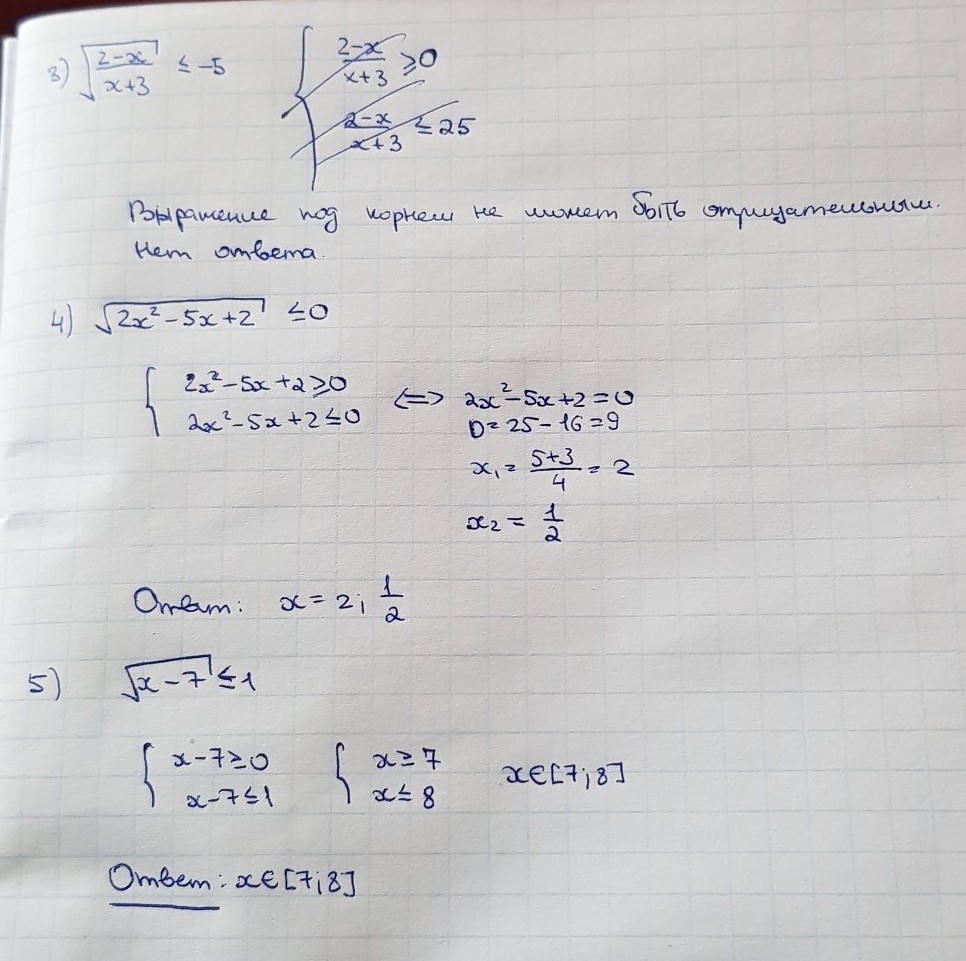 3) √((2-x)/(x+3)) ≤ -5 { (2-x)/(x+3) ≥ 0
(2-x)/(x+3) ≤ 25
Выражение под корнем не может быть отрицательным.
Нет ответа.
4) √(2x²-5x+2) ≤ 0
{ 2x²-5x+2 ≥ 0 <=> 2x²-5x+2 = 0
2x²-5x+2 ≤ 0 D = 25 - 16 = 9
x₁ = (5+3)/4 = 2
x₂ = 1/2
Ответ: x = 2; 1/2
5) √(x-7) ≤ 1
{ x-7 ≥ 0 { x ≥ 7 x∈[7;8]
x-7 ≤ 1 x ≤ 8
Ответ: x∈[7;8]